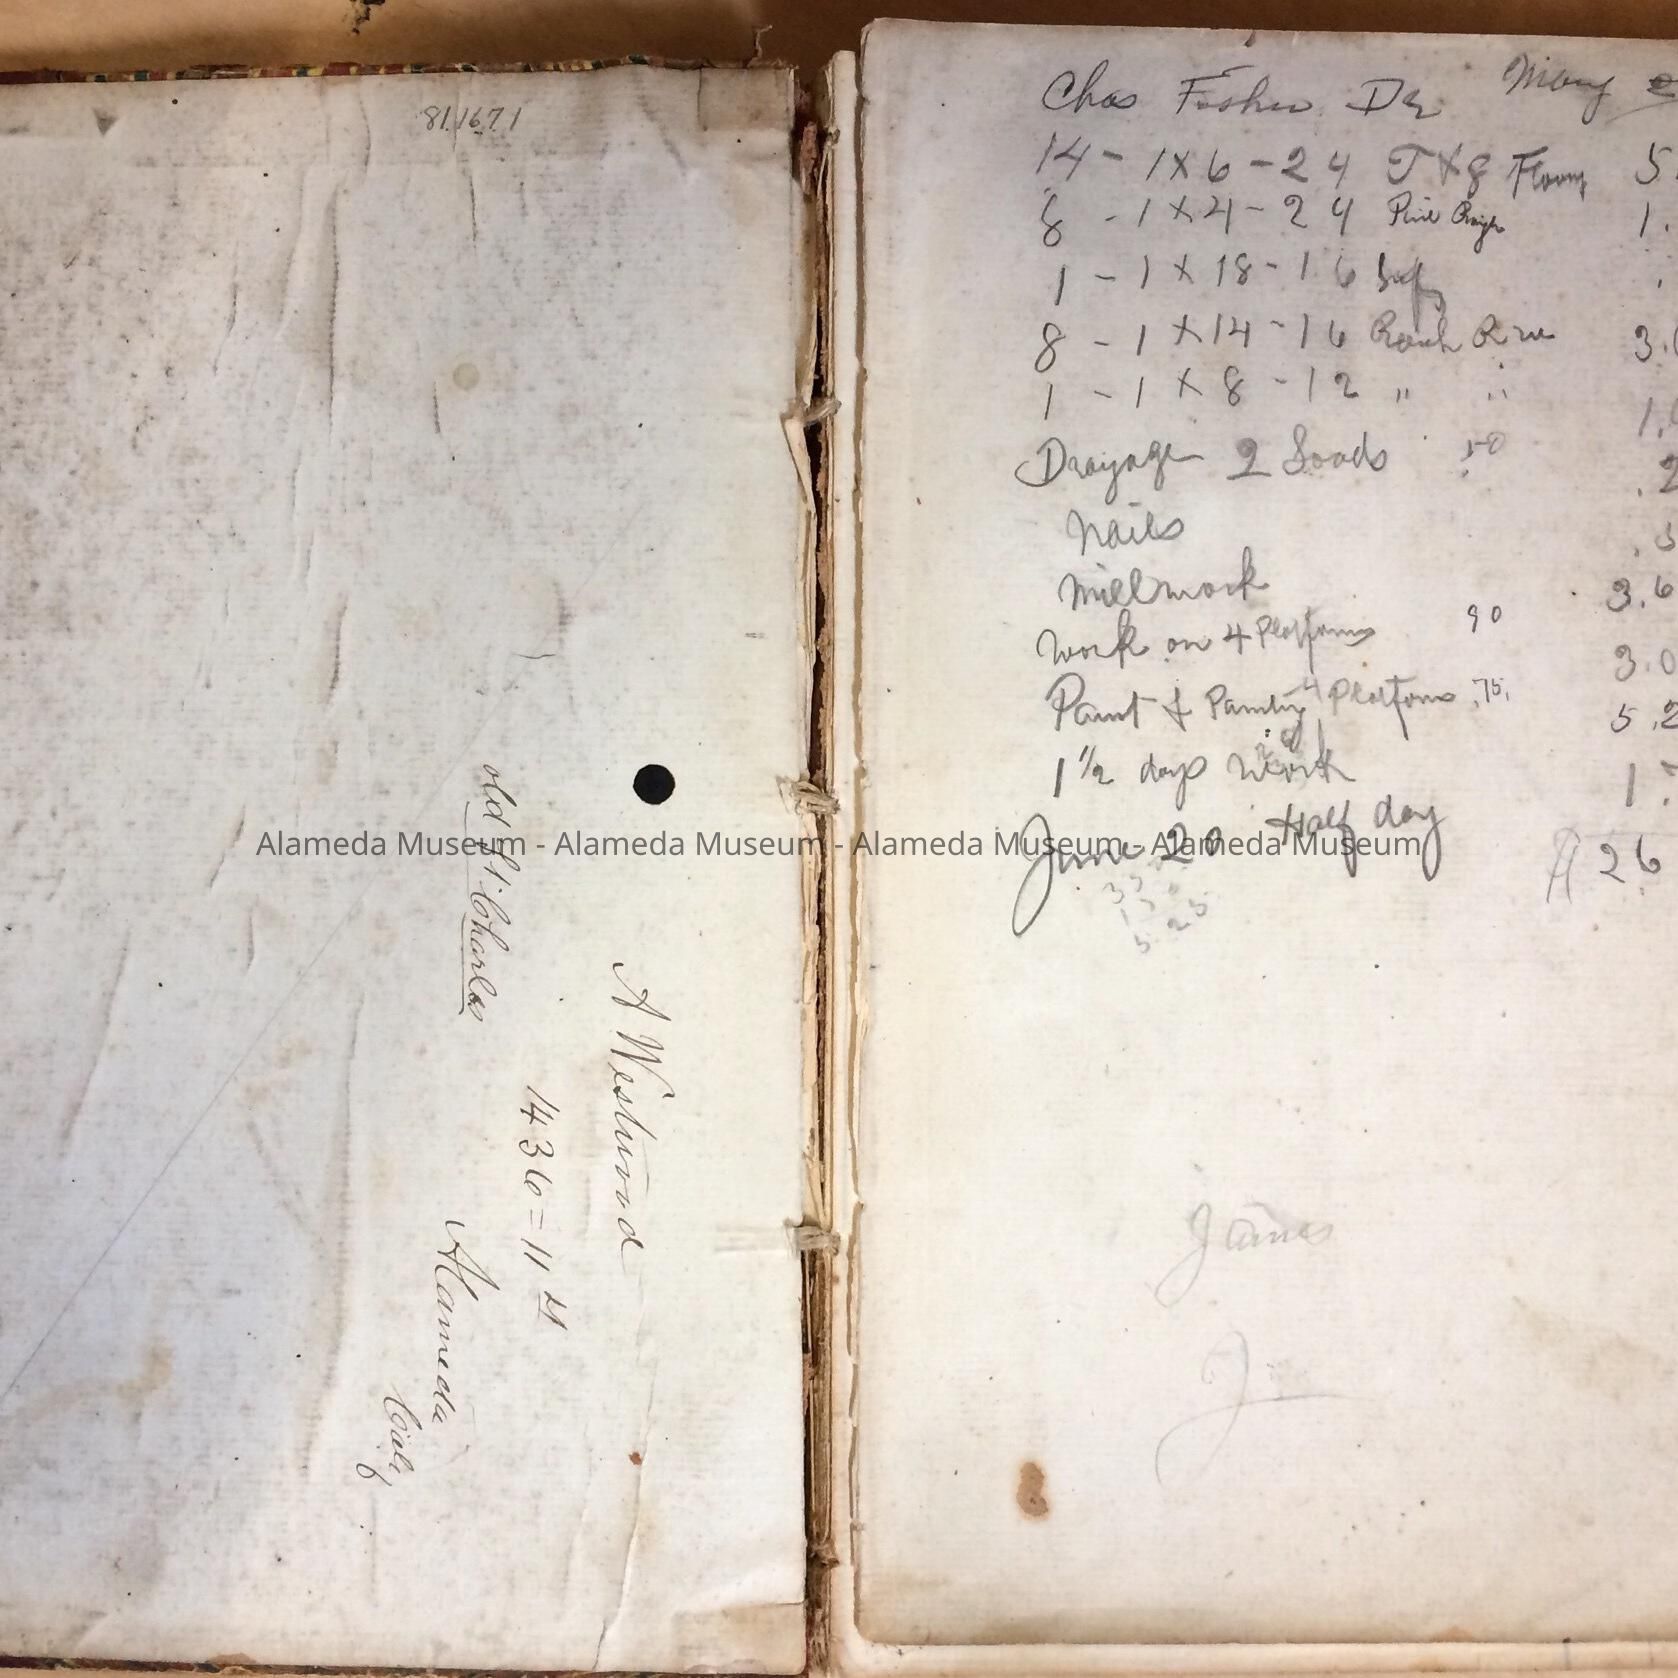 811671
A Westwood
1436 = 11
old St. Charles
Alameda
Calif
Chas Fisher Dr May
14 - 1 x 6 - 24 T & G Floory 5.
8 - 1 x 4 - 24 Pine 1.
1 - 1 x 18 - 16 .
8 - 1 x 14 - 16 Rough Pine 3.
1 - 1 x 8 - 12 " " 1.
Drayage 2 Loads 50 .2
Nails .
Millwork 3.6
Work on 4 Platforms 90 3.0
Paint & Painting 4 Platforms .75. 5.2
1 1/2 days Work 1
June 20 Half day 26
5 25
James
J
Alameda Museum - Alameda Museum - Alameda Museum - Alameda Museum